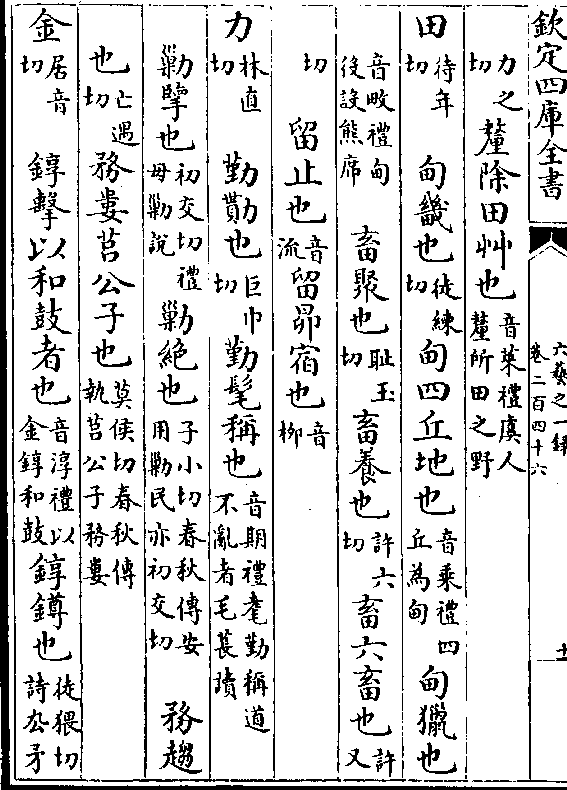 欽定四庫全書
六藝之一録
卷二百四十六
十一
力之切釐除田艸也音萊禮虞人釐所田之野
田待年切甸畿也徒練切甸四丘地也音乘禮四丘為甸甸獵也
音畋禮甸後設熊席畜聚也耻玉切畜養也許六切畜六畜也許又
切留止也音流留昴宿也音柳
力林直切勤勩也巨巾切勤髦稱也音期禮耄勤稱道不亂者毛萇讀
勦擥也初交切禮毋勦說勦絕也子小切春秋傳安用勦民亦初交切務趨
也亡遇切務婁莒公子也莫侯切春秋傳執莒公子務婁
金居音切錞擊以和鼓者也音淳禮以金錞和鼓錞鐏也徒猥切詩厹矛